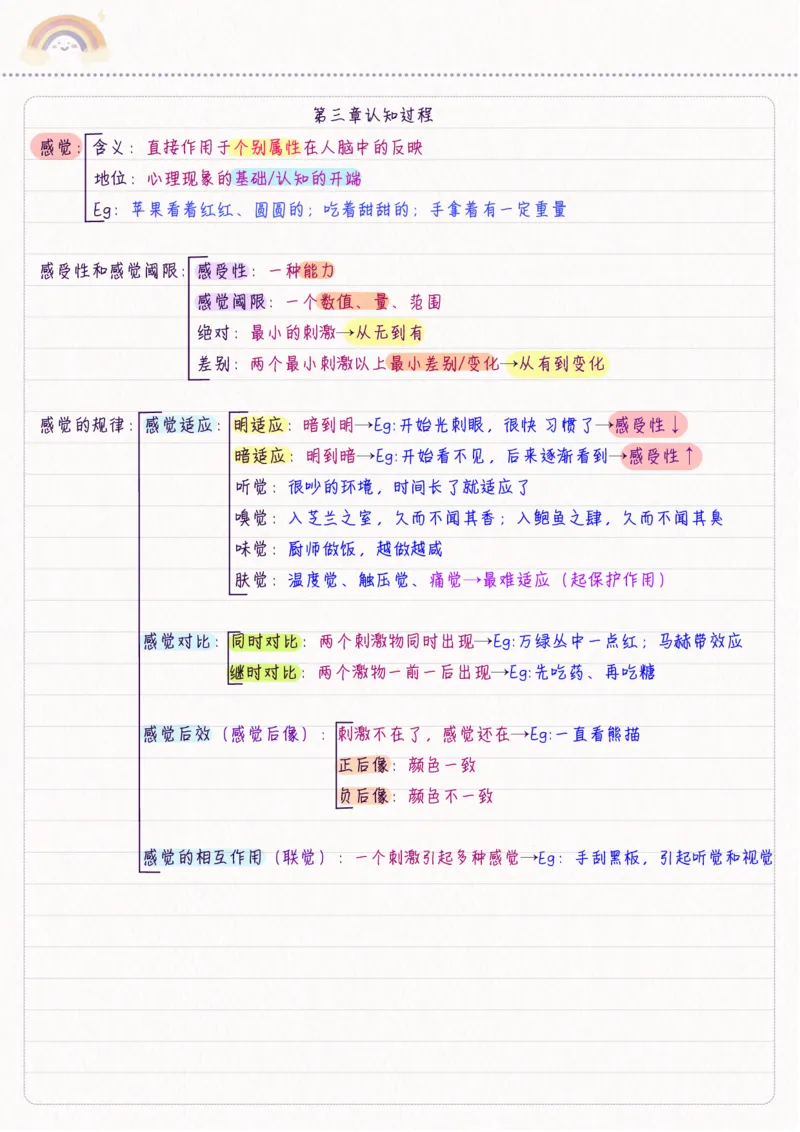 第三章认知过程
感觉：含义：直接作用于个别属性在人脑中的反映
地位：心理现象的基础/认知的开端
Eg：苹果看着红红、圆圆的；吃着甜甜的；手拿着有一定重量
感受性和感觉阈限：感受性：一种能力
感觉阈限：一个数值、量、范围
绝对：最小的刺激→从无到有
差别：两个最小刺激以上最小差别/变化→从有到变化
感觉的规律：感觉适应：明适应：暗到明→Eg:开始光刺眼，很快 习惯了→感受性↓
暗适应：明到暗→Eg:开始看不见，后来逐渐看到→感受性↑
听觉：很吵的环境，时间长了就适应了
嗅觉：入芝兰之室，久而不闻其香；入鲍鱼之肆，久而不闻其臭
味觉：厨师做饭，越做越咸
肤觉：温度觉、触压觉、痛觉→最难适应（起保护作用）
感觉对比：同时对比：两个刺激物同时出现→Eg:万绿丛中一点红；马赫带效应
继时对比：两个激物一前一后出现→Eg:先吃药、再吃糖
感觉后效（感觉后像）：刺激不在了，感觉还在→Eg:一直看熊猫
正后像：颜色一致
负后像：颜色不一致
感觉的相互作用（联觉）：一个刺激引起多种感觉→Eg：手刮黑板，引起听觉和视觉